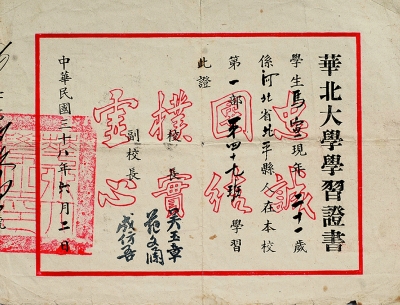 華北大學學習證書
學生馬空現年二十一歲
係河北省北平縣人在本校
第一部第四十九班學習
此證
校長 吳玉章
副校長 范文瀾
成仿吾
中華民國三十八年六月二日
忠誠
團結
樸實
虛心